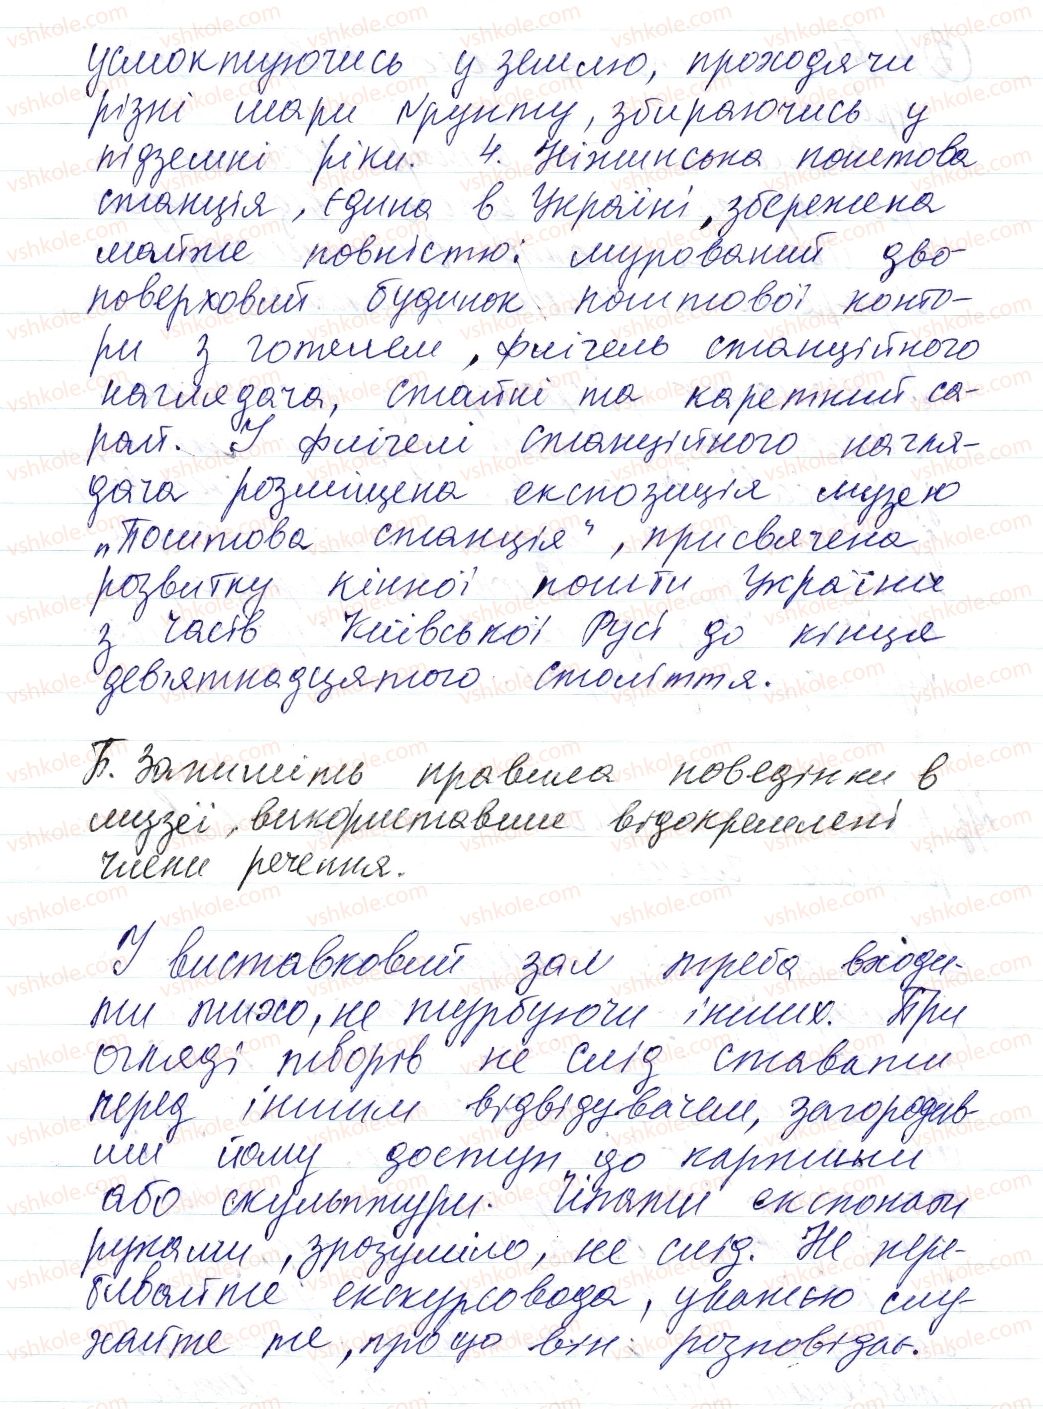 усмоктуючись у землю, проходячи
різні шари ґрунту, збираючись у
підземні ріки. 4. Ніжинська поштова
станція, єдина в Україні, збережена
майже повністю: мурований дво-
поверховий будинок поштової конто-
ри з готелем, флігель станційного
наглядача, стайні та каретний са-
рай. У флігелі станційного нагля-
дача розміщена експозиція музею
„Поштова станція“, присвячена
розвитку кінної пошти України
з часів Київської Русі до кінця
дев'ятнадцятого століття.
Б. Запишіть правила поведінки в
музеї, використавши відокремлені
члени речення.
У виставковий зал треба входи-
ти тихо, не турбуючи інших. При
огляді творів не слід ставати
перед іншим відвідувачем, загородив-
ши йому доступ до картини
або скульптури. Чіпати експонати
руками, зрозуміло, не слід. Не пере-
бивайте екскурсовода, уважно слу-
хайте те, про що він розповідає.